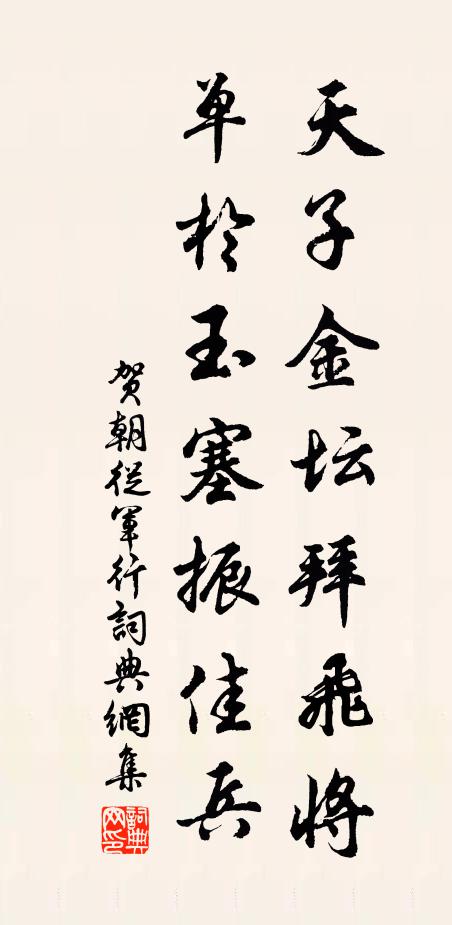 天子金坛拜飛將
单於玉塞振佳兵
贺朝從軍行詞典網集
詞典網印